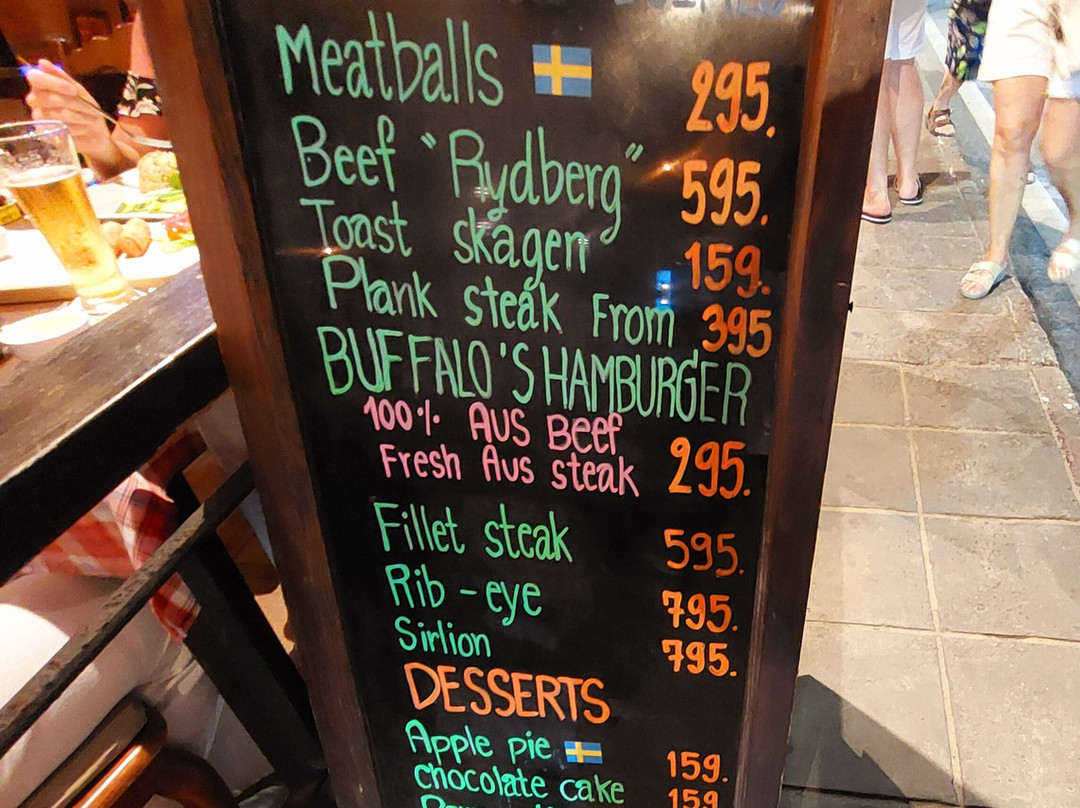 Meatballs 295.
Beef "Rydberg" 595.
Toast skagen 159.
Plank steak From 395
BUFFALO'S HAMBURGER
100% AUS Beef
Fresh Aus steak 295.
Fillet steak 595.
Rib-eye 795.
Sirlion 795.
DESSERTS
Apple pie 159.
chocolate cake 159